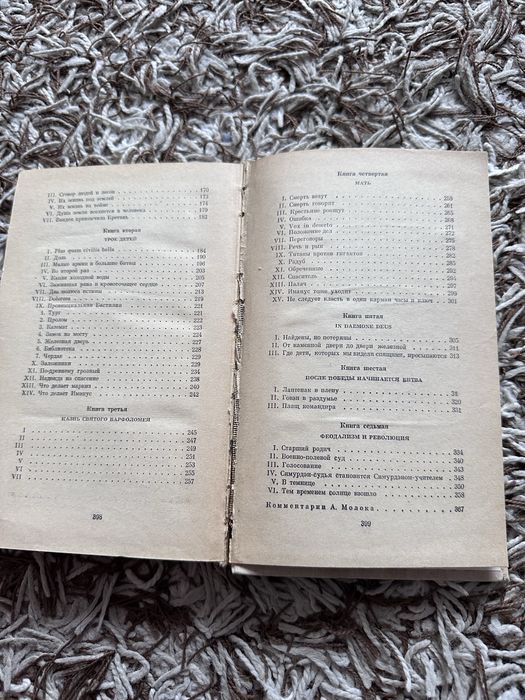 III. Сговор людей и лесов 170
IV. Их жизнь под землей 173
V. Их жизнь на войне 174
VI. Душа земли вселяется в человека 179
VII. Вандея прикончила Бретань 182
Книга вторая
ТРОЕ ДЕТЕЙ
I. Plus quam civilia bella 184
II. Доль 190
III. Малые армии и большие битвы 196
IV. Во второй раз 203
V. Капля холодной воды 205
VI. Зажившая рана и кровоточащее сердце 207
VII. Два полюса истины 212
VIII. Dolorosa 218
IX. Провинциальная Бастилия 221
1. Тург 221
2. Пролом 221
3. Каземат 222
4. Замок на мосту 224
5. Железная дверь 226
6. Библиотека 228
7. Чердак 229
X. Заложники 229
XI. По-древнему грозный 234
XII. Надежда на спасение 238
XIII. Что делает маркиз 240
XIV. Что делает Иманус 242
Книга третья
КАЗНЬ СВЯТОГО ВАРФОЛОМЕЯ
I 245
II 247
III 249
IV 251
V 253
VI 255
VII 257
398
Книга четвертая
МАТЬ
I. Смерть везут 259
II. Смерть говорит 261
III. Крестьяне ропщут 264
IV. Ошибка 268
V. Vox in deserto 269
VI. Положение дел 271
VII. Переговоры 273
VIII. Речь и рык 276
IX. Титаны против гигантов 279
X. Радуб
XI. Обреченные
XII. Спаситель
XIII. Палач
XIV. Иманус тоже уходит 299
XV. Не следует класть в один карман часы и ключ 301
Книга пятая
IN DAEMONE DEUS
I. Найдены, но потеряны 305
II. От каменной двери до двери железной 311
III. Где дети, которых мы видели спящими, просыпаются 313
Книга шестая
ПОСЛЕ ПОБЕДЫ НАЧИНАЕТСЯ БИТВА
I. Лантенак в плену
II. Говэн в раздумье 320
III. Плащ командира 331
Книга седьмая
ФЕОДАЛИЗМ И РЕВОЛЮЦИЯ
I. Старший родич 334
II. Военно-полевой суд 340
III. Голосование 343
IV. Симурдэн-судья становится Симурдэном-учителем 348
V. В темнице 350
VI. Тем временем солнце взошло 358
Комментарии А. Молока 367
399